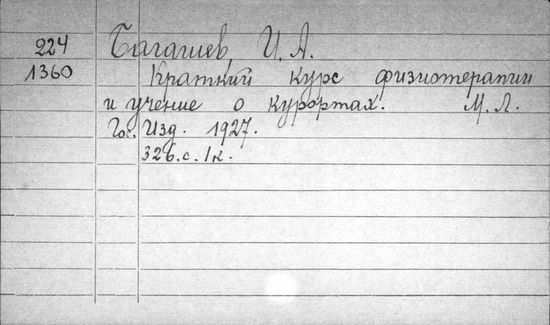 224 Багашев, И. А.
1360 Краткий курс физиотерапии
и учение о курортах. М. Л.
Гос. Изд. 1927.
326. с. 1 к.